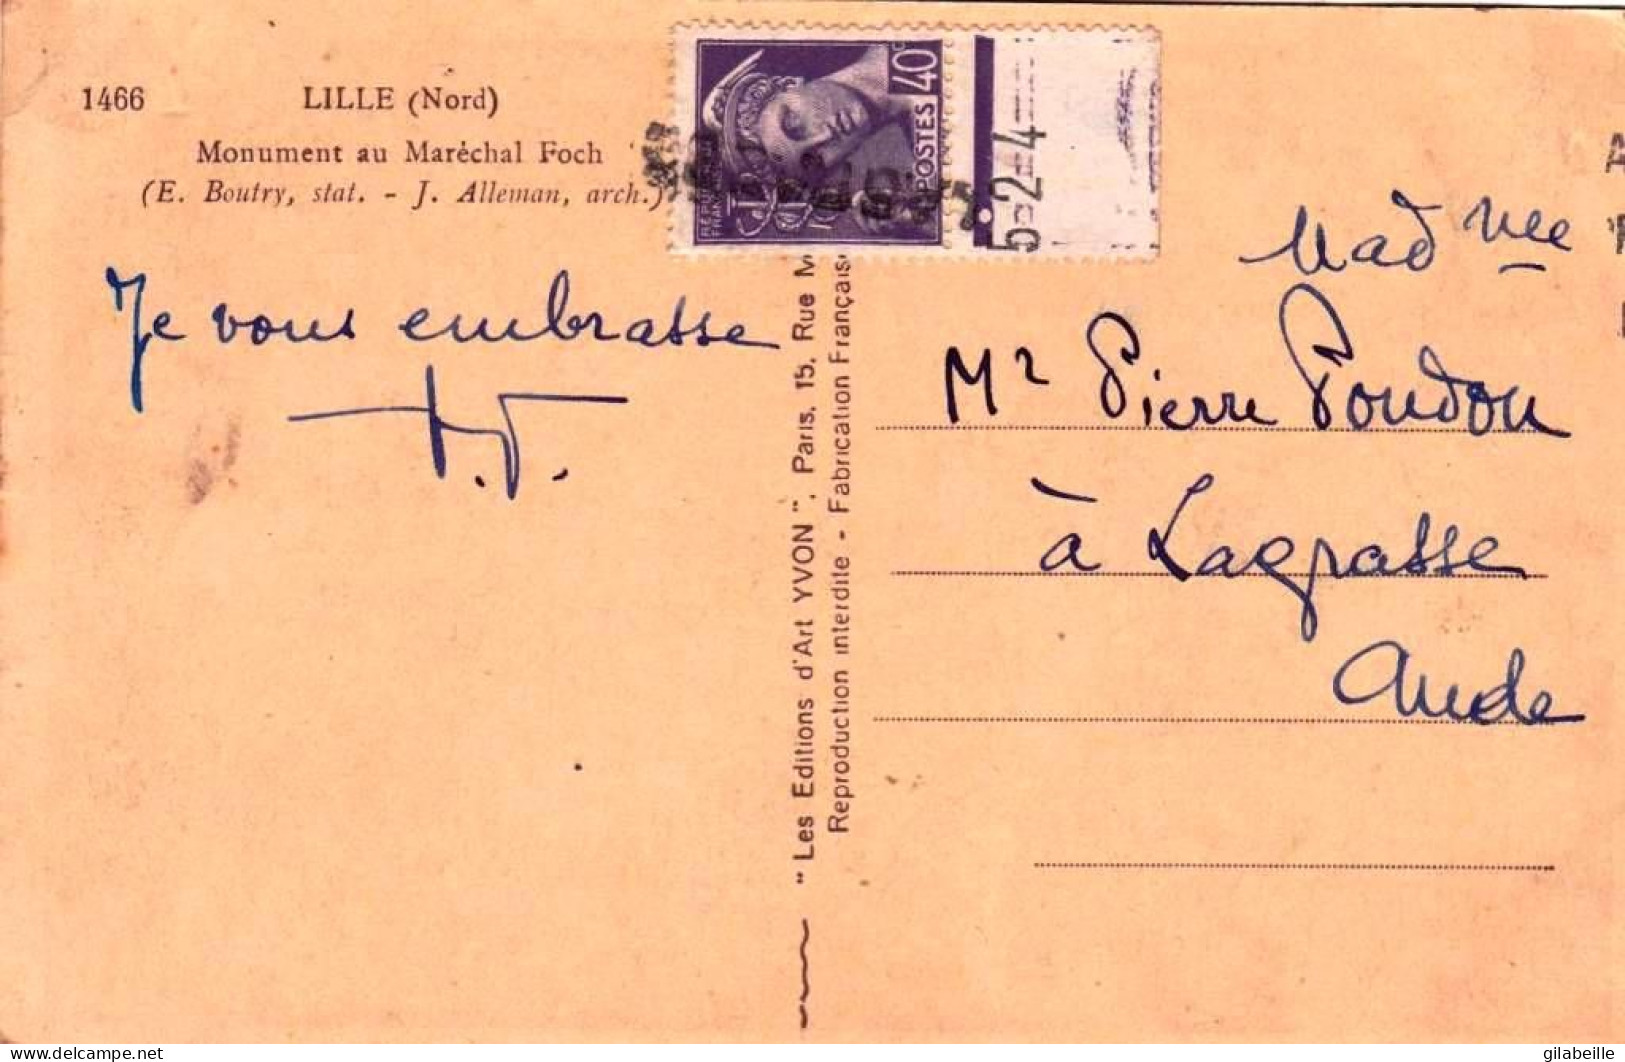 1466 LILLE (Nord)
Monument au Maréchal Foch
(E. Boutry, stat. - J. Alleman, arch.)
Je vous embrasse
40c
POSTES
5-2-4
"Les Editions d'Art YVON", Paris, 15, Rue M
Reproduction interdite - Fabrication Française
Mr Pierre Poudou
à Lagrasse
Aude
delcampe.net
gilabeille